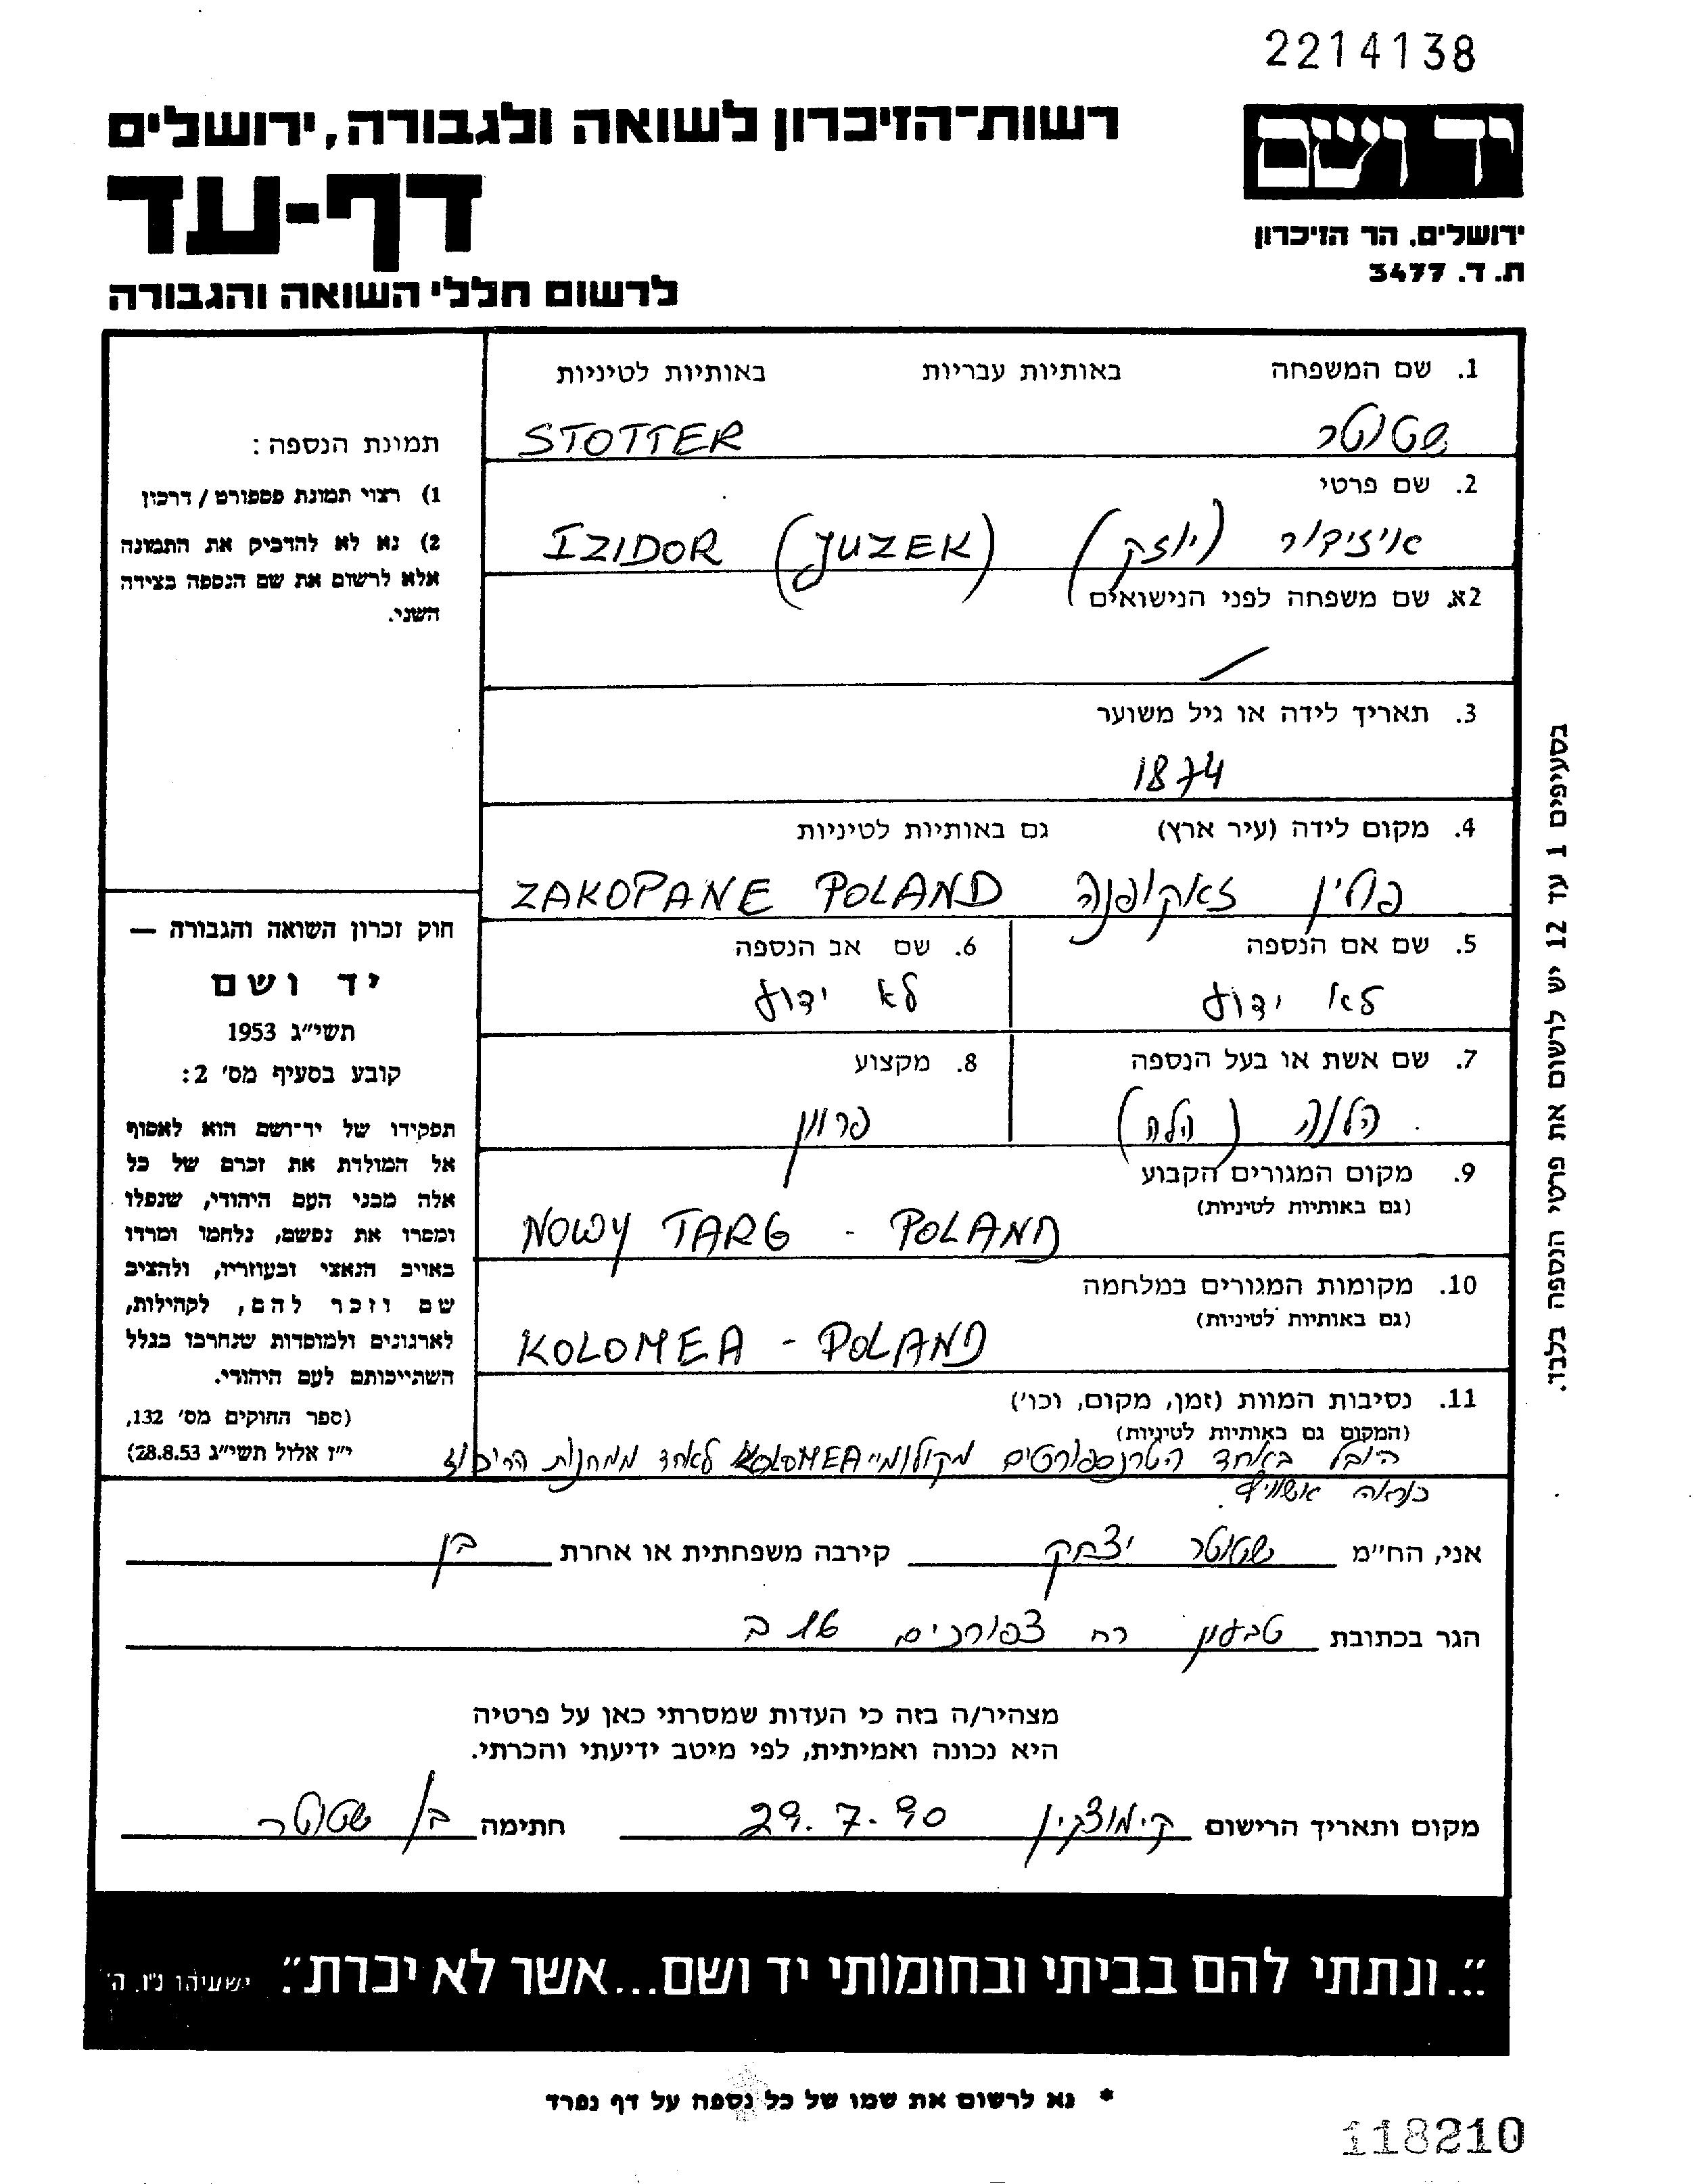 2214138
יד ושם
רשות־הזיכרון לשואה ולגבורה, ירושלים
דף-עד
ירושלים. הר הזיכרון
ת. ד. 3477
לרשום חללי השואה והגבורה
1. שם המשפחה באותיות עבריות באותיות לטיניות
שטוטר STOTTER
2. שם פרטי
איזידור (יוזק) IZIDOR (JUZEK)
2א. שם משפחה לפני הנישואים
3. תאריך לידה או גיל משוער
1874
4. מקום לידה (עיר ארץ) גם באותיות לטיניות
פולין זאקופנה ZAKOPANE POLAND
5. שם אם הנספה
לא ידוע
6. שם אב הנספה
לא ידוע
7. שם אשת או בעל הנספה
הלנה (הלה)
8. מקצוע
פרוון
9. מקום המגורים הקבוע
(גם באותיות לטיניות)
NOWY TARG - POLAND
10. מקומות המגורים במלחמה
(גם באותיות לטיניות)
KOLOMEA - POLAND
11. נסיבות המוות (זמן, מקום, וכו')
(המקום גם באותיות לטיניות)
הובל באחד הטרנספורטים מקולומיי KOLOMEA לאחד ממחנות הריכוז
כנראה אשוויץ.
תמונת הנספה:
1) רצוי תמונת פספורט / דרכון
2) נא לא להדביק את התמונה
אלא לרשום את שם הנספה בצידה
השני.
חוק זכרון השואה והגבורה —
יד ושם
תשי״ג 1953
קובע בסעיף מס' 2:
תפקידו של יד־ושם הוא לאסוף
אל המולדת את זכרם של כל
אלה מבני העם היהודי, שנפלו
ומסרו את נפשם, נלחמו ומרדו
באויב הנאצי ובעוזריו, ולהציב
שם וזכר להם, לקהילות,
לארגונים ולמוסדות שנחרבו בגלל
השתייכותם לעם היהודי.
(ספר החוקים מס' 132,
י״ז אלול תשי״ג 28.8.53)
בסעיפים 1 עד 12 יש לרשום את פרטי הנספה בלבד.
אני, הח״מ שטוטר יצחק קירבה משפחתית או אחרת בן
הגר בכתובת טבעון רח צפורנים 16 ב
מצהיר/ה בזה כי העדות שמסרתי כאן על פרטיה
היא נכונה ואמיתית, לפי מיטב ידיעתי והכרתי.
מקום ותאריך הרישום ק.מוצקין 29.7.90 חתימה בן שטוטר
״...ונתתי להם בביתי ובחומותי יד ושם...אשר לא יכרת״. ישעיהו נ״ו. ה'
* נא לרשום את שמו של כל נספה על דף נפרד
118210